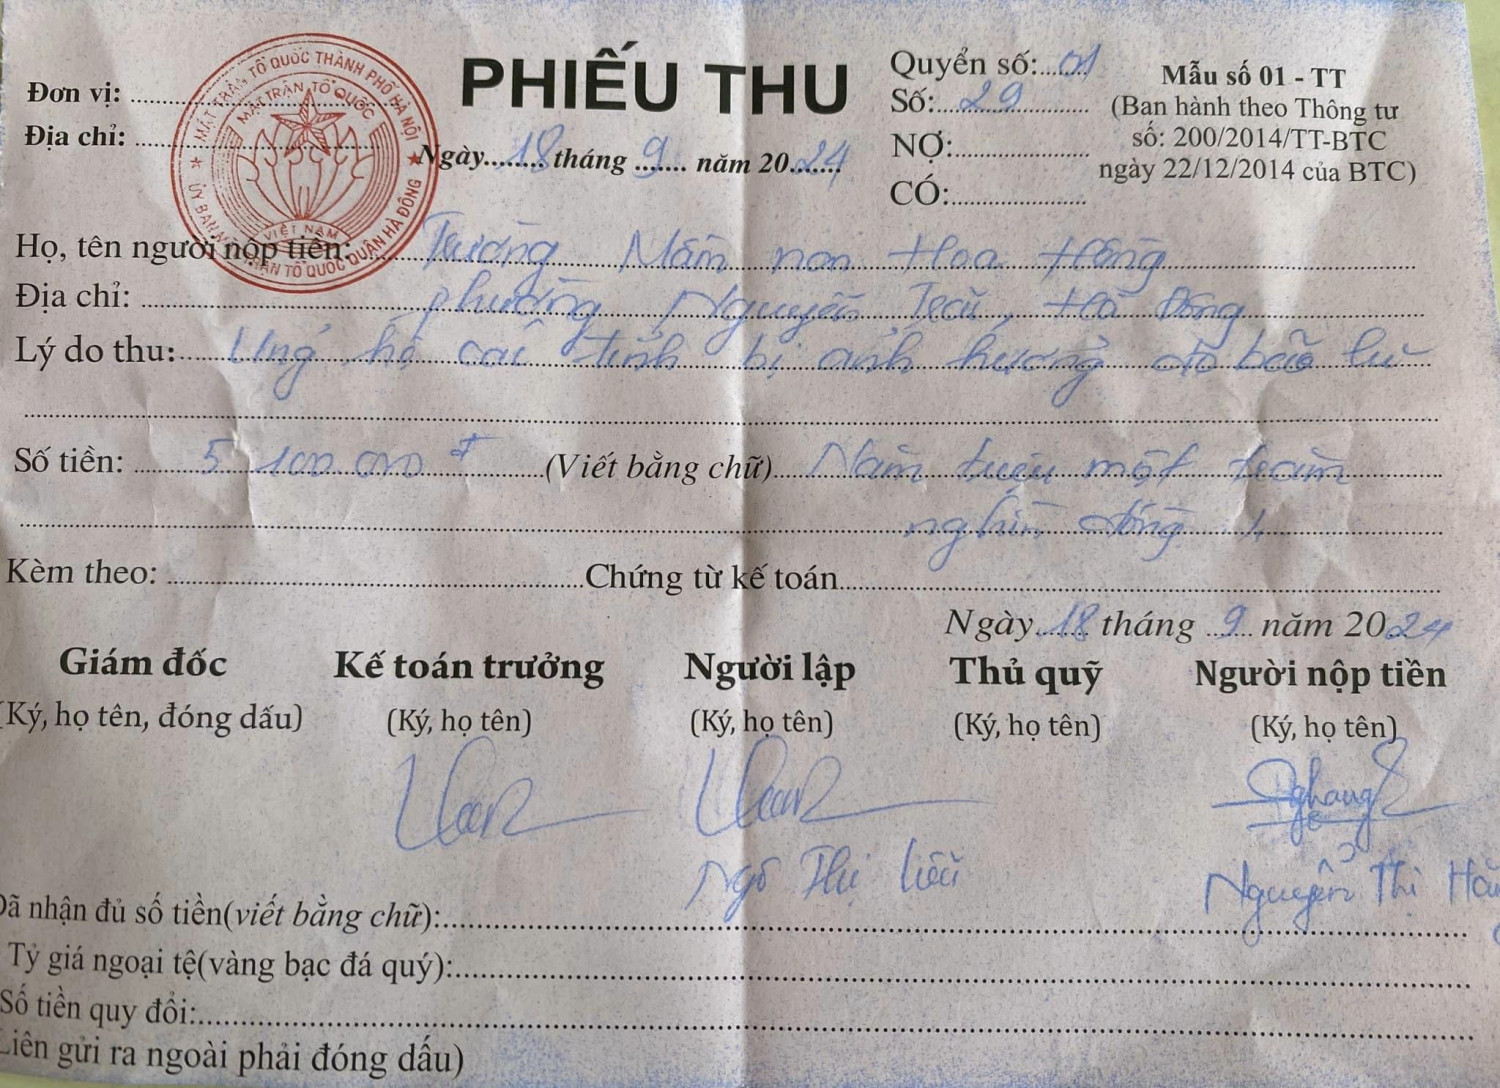 PHIẾU THU
Đơn vị:
Địa chỉ:
MẶT TRẬN TỔ QUỐC THÀNH PHỐ HÀ NỘI
MẶT TRẬN TỔ QUỐC
VIỆT NAM
ỦY BAN MẶT TRẬN TỔ QUỐC QUẬN HÀ ĐÔNG
Ngày 18 tháng 9 năm 2024
Quyển số: 01
Số: 29
NỢ:
CÓ:
Mẫu số 01 - TT
(Ban hành theo Thông tư
số: 200/2014/TT-BTC
ngày 22/12/2014 của BTC)
Họ, tên người nộp tiền: Trường Mầm non Hoa Hồng
Địa chỉ: phường Nguyễn Trãi, Hà Đông
Lý do thu: Ủng hộ các tỉnh bị ảnh hưởng do bão lũ
Số tiền: 5 100.000 đ (Viết bằng chữ) Năm triệu một trăm
nghìn đồng ./.
Kèm theo: Chứng từ kế toán
Ngày 18 tháng 9 năm 2024
Giám đốc Kế toán trưởng Người lập Thủ quỹ Người nộp tiền
(Ký, họ tên, đóng dấu) (Ký, họ tên) (Ký, họ tên) (Ký, họ tên) (Ký, họ tên)
Ngô Thị Nguyễn Thị
Đã nhận đủ số tiền(viết bằng chữ):
Tỷ giá ngoại tệ(vàng bạc đá quý):
Số tiền quy đổi:
Liên gửi ra ngoài phải đóng dấu)